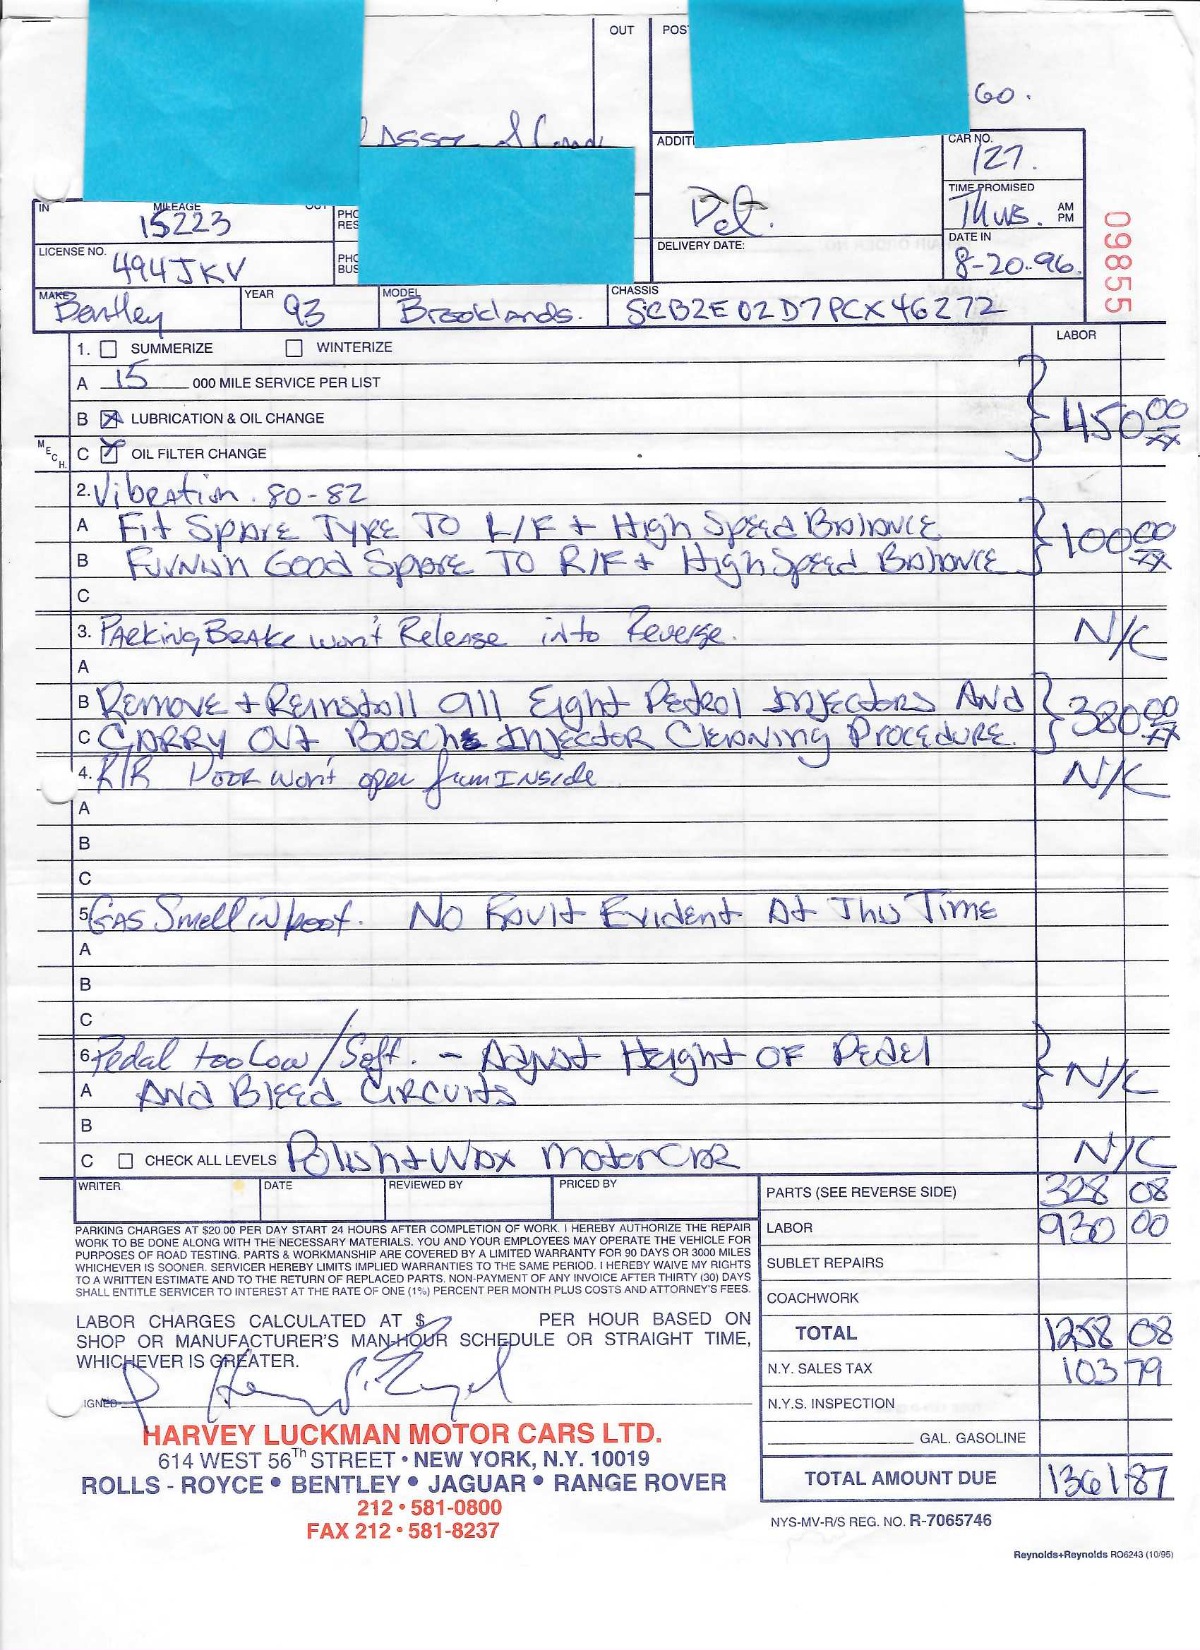 OUT POS
GO.
ASSOC
ADDIT
CAR NO.
127.
Del.
TIME PROMISED
Thurs. AM PM
IN MILEAGE OUT
15223
PHO
RES
LICENSE NO.
494JKV
PHO
BUS
DELIVERY DATE:
DATE IN
8-20-96.
09855
MAKE Bentley YEAR 93 MODEL Brooklands. CHASSIS SCBZE02D7PCX46272
1. SUMMERIZE WINTERIZE LABOR
A 15 000 MILE SERVICE PER LIST
B LUBRICATION & OIL CHANGE 450 00/xx
MECH. C OIL FILTER CHANGE
2. Vibration. 80-82
A Fit Spare Tyre To L/F + High Speed Balance 100 00/xx
B Furnish Good Spare To R/F + High Speed Balance
C
3. Parking Brake won't Release into Reverse. N/C
A
B Remove + Reinstall All Eight Petrol Injectors And 380 00/xx
C Carry Out Bosch Injector Cleaning Procedure.
4. R/R Door won't open from Inside N/C
A
B
C
5 Gas Smell in . No Fault Evident At This Time
A
B
C
6. Pedal too Low / Soft. - Adjust Height Of Pedel
A And Bleed Circuits N/C
B
C CHECK ALL LEVELS Polish + Wax Motorcar N/C
WRITER DATE REVIEWED BY PRICED BY PARTS (SEE REVERSE SIDE) 328 08
PARKING CHARGES AT $20.00 PER DAY START 24 HOURS AFTER COMPLETION OF WORK. I HEREBY AUTHORIZE THE REPAIR
WORK TO BE DONE ALONG WITH THE NECESSARY MATERIALS. YOU AND YOUR EMPLOYEES MAY OPERATE THE VEHICLE FOR
PURPOSES OF ROAD TESTING. PARTS & WORKMANSHIP ARE COVERED BY A LIMITED WARRANTY FOR 90 DAYS OR 3000 MILES
WHICHEVER IS SOONER. SERVICER HEREBY LIMITS IMPLIED WARRANTIES TO THE SAME PERIOD. I HEREBY WAIVE MY RIGHTS
TO A WRITTEN ESTIMATE AND TO THE RETURN OF REPLACED PARTS. NON-PAYMENT OF ANY INVOICE AFTER THIRTY (30) DAYS
SHALL ENTITLE SERVICER TO INTEREST AT THE RATE OF ONE (1%) PERCENT PER MONTH PLUS COSTS AND ATTORNEY'S FEES.
LABOR 930 00
SUBLET REPAIRS
COACHWORK
LABOR CHARGES CALCULATED AT $ PER HOUR BASED ON
SHOP OR MANUFACTURER'S MAN-HOUR SCHEDULE OR STRAIGHT TIME,
WHICHEVER IS GREATER.
TOTAL 1258 08
N.Y. SALES TAX 103 79
IGNED
N.Y.S. INSPECTION
GAL. GASOLINE
TOTAL AMOUNT DUE 1361 87
HARVEY LUCKMAN MOTOR CARS LTD.
614 WEST 56Th STREET • NEW YORK, N.Y. 10019
ROLLS - ROYCE • BENTLEY • JAGUAR • RANGE ROVER
212 • 581-0800
FAX 212 • 581-8237
NYS-MV-R/S REG. NO. R-7065746
Reynolds+Reynolds RO6243 (10/95)